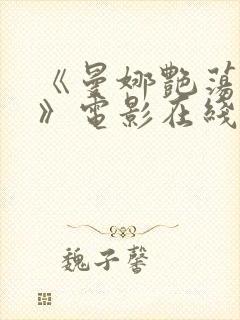 《曼娜艷蕩
》電影在綫
魏子馨